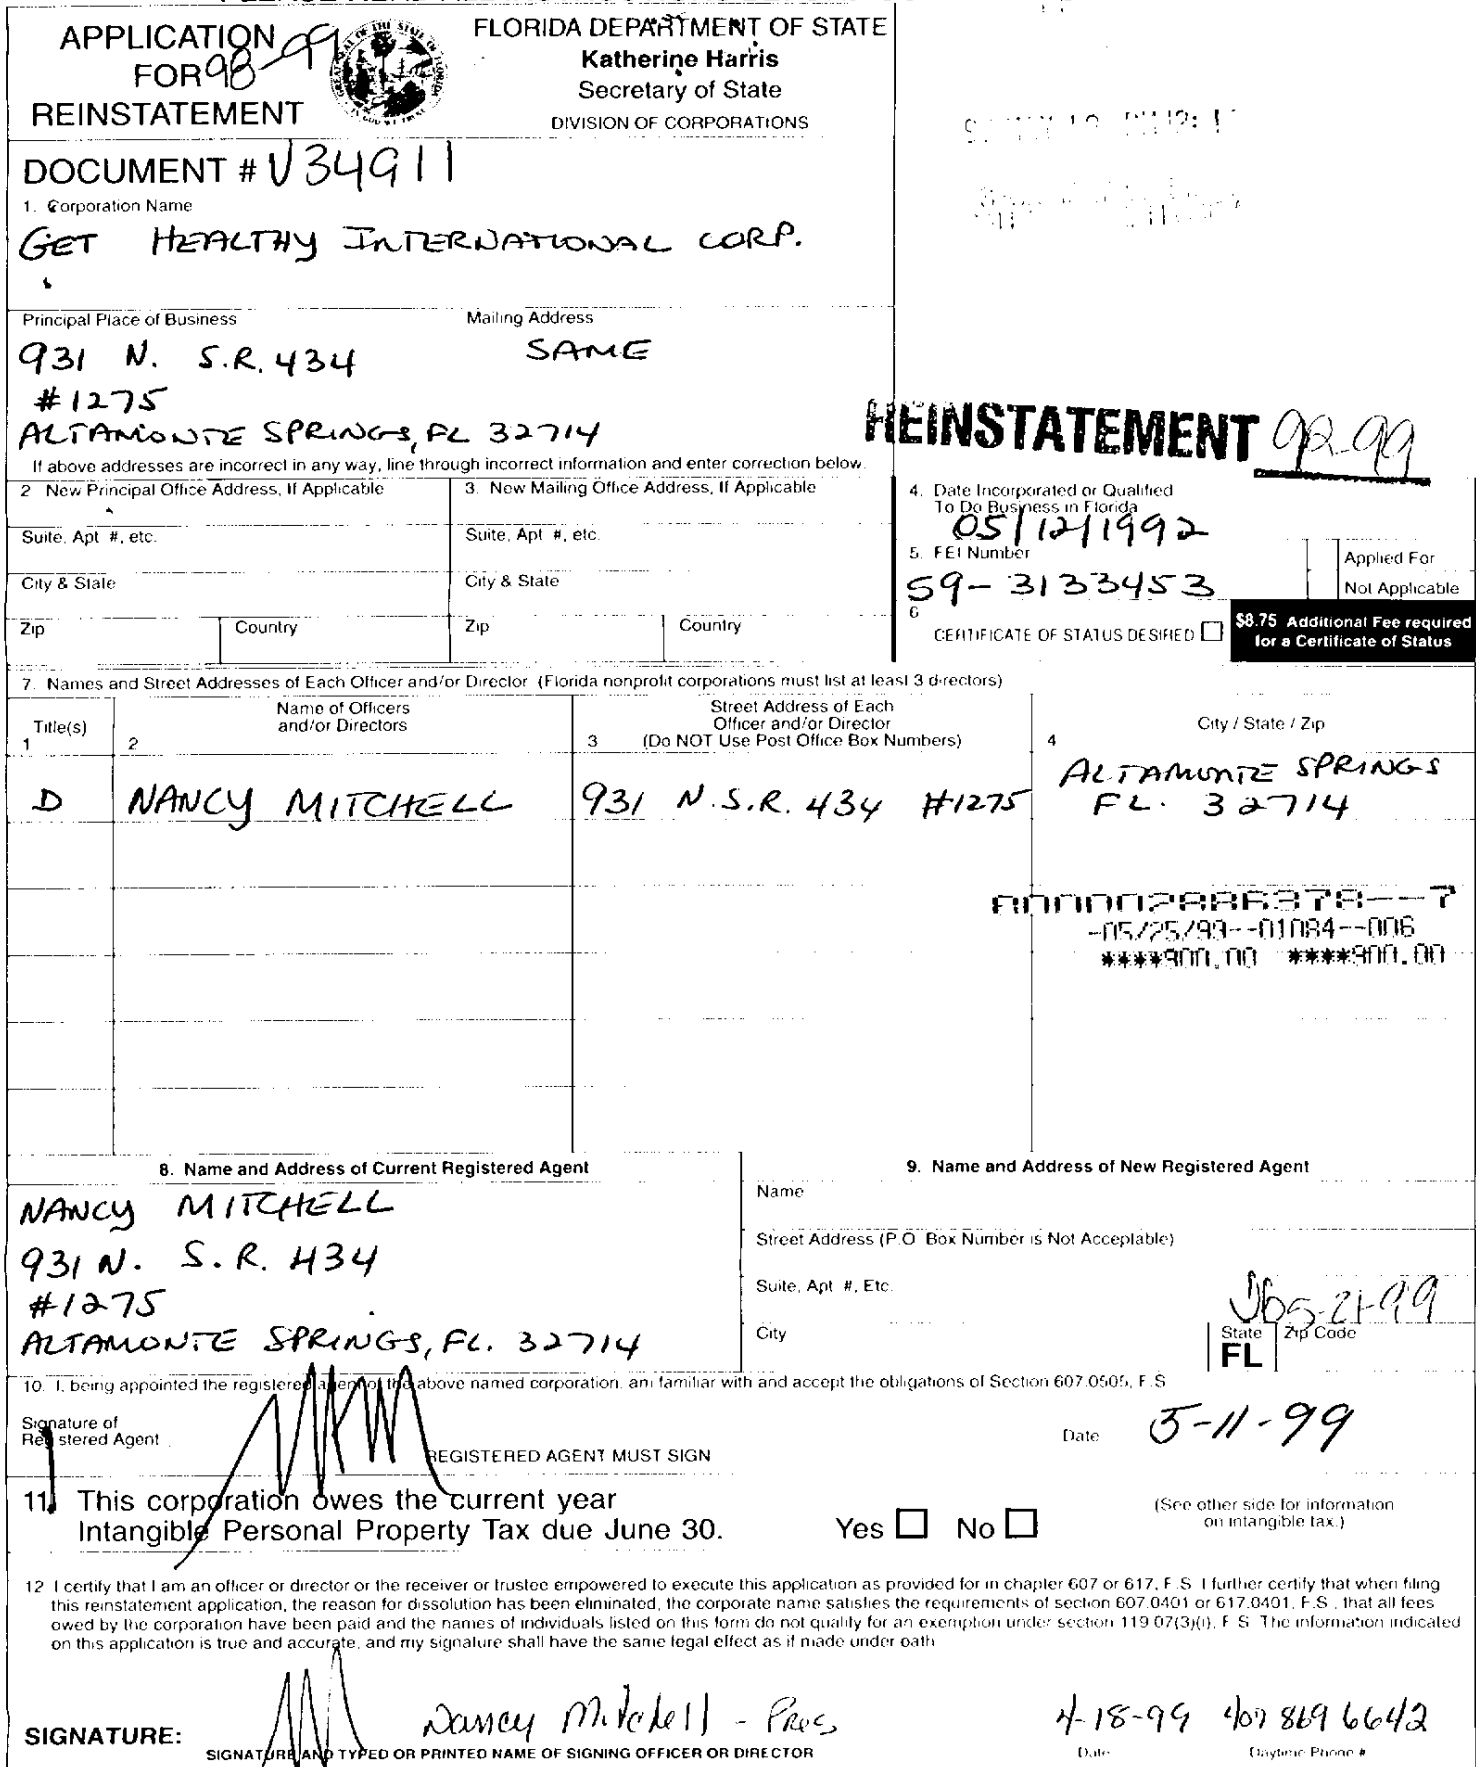 APPLICATION
FOR 98-99
REINSTATEMENT
FLORIDA DEPARTMENT OF STATE
Katherine Harris
Secretary of State
DIVISION OF CORPORATIONS
DOCUMENT # V34911
1. Corporation Name
GET HEALTHY INTERNATIONAL CORP.
Principal Place of Business
Mailing Address
931 N. S.R. 434
SAME
#1275
ALTAMONTE SPRINGS, FL 32714
REINSTATEMENT
If above addresses are incorrect in any way, line through incorrect information and enter correction below.
2 New Principal Office Address, If Applicable
3. New Mailing Office Address, If Applicable
4. Date Incorporated or Qualified
To Do Business in Florida
05/12/1992
Suite, Apt #, etc.
Suite, Apt #, etc.
5. FEI Number
59-3133453
Applied For
Not Applicable
City & State
City & State
6
CERTIFICATE OF STATUS DESIRED
$8.75 Additional Fee required
for a Certificate of Status
Zip
Country
Zip
Country
7. Names and Street Addresses of Each Officer and/or Director (Florida nonprofit corporations must list at least 3 directors)
Title(s)
1
Name of Officers
and/or Directors
2
Street Address of Each
Officer and/or Director
3 (Do NOT Use Post Office Box Numbers)
City / State / Zip
4
D
NANCY MITCHELL
931 N.S.R. 434 #1275
ALTAMONTE SPRINGS
FL. 32714
-05/25/99--01084--006
****900.00 ****900.00
8. Name and Address of Current Registered Agent
9. Name and Address of New Registered Agent
NANCY MITCHELL
931 N. S.R. 434
#1275
ALTAMONTE SPRINGS, FL. 32714
Name
Street Address (P.O. Box Number is Not Acceptable)
Suite, Apt #, Etc.
5-21-99
City
State
FL
Zip Code
10. I, being appointed the registered agent of the above named corporation, am familiar with and accept the obligations of Section 607.0505, F.S
Signature of
Registered Agent
REGISTERED AGENT MUST SIGN
Date
5-11-99
11. This corporation owes the current year
Intangible Personal Property Tax due June 30.
Yes
No
(See other side for information
on intangible tax.)
12 I certify that I am an officer or director or the receiver or trustee empowered to execute this application as provided for in chapter 607 or 617, F.S I further certify that when filing
this reinstatement application, the reason for dissolution has been eliminated, the corporate name satisfies the requirements of section 607.0401 or 617.0401, F.S., that all fees
owed by the corporation have been paid and the names of individuals listed on this form do not qualify for an exemption under section 119.07(3)(i), F.S. The information indicated
on this application is true and accurate, and my signature shall have the same legal effect as if made under oath
SIGNATURE:
Nancy Mitchell - Pres
4-18-99 407 869 6642
SIGNATURE AND TYPED OR PRINTED NAME OF SIGNING OFFICER OR DIRECTOR
Date
Daytime Phone #